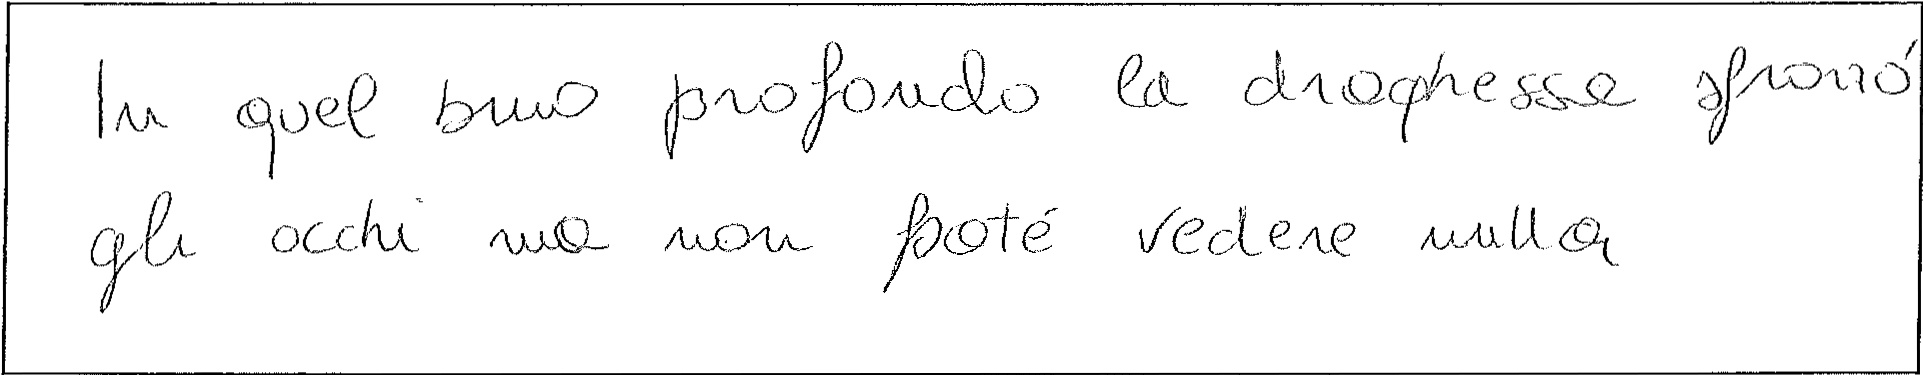 In quel buio profondo la draghessa sfrorró
gli occhi ma non poté vedere nulla